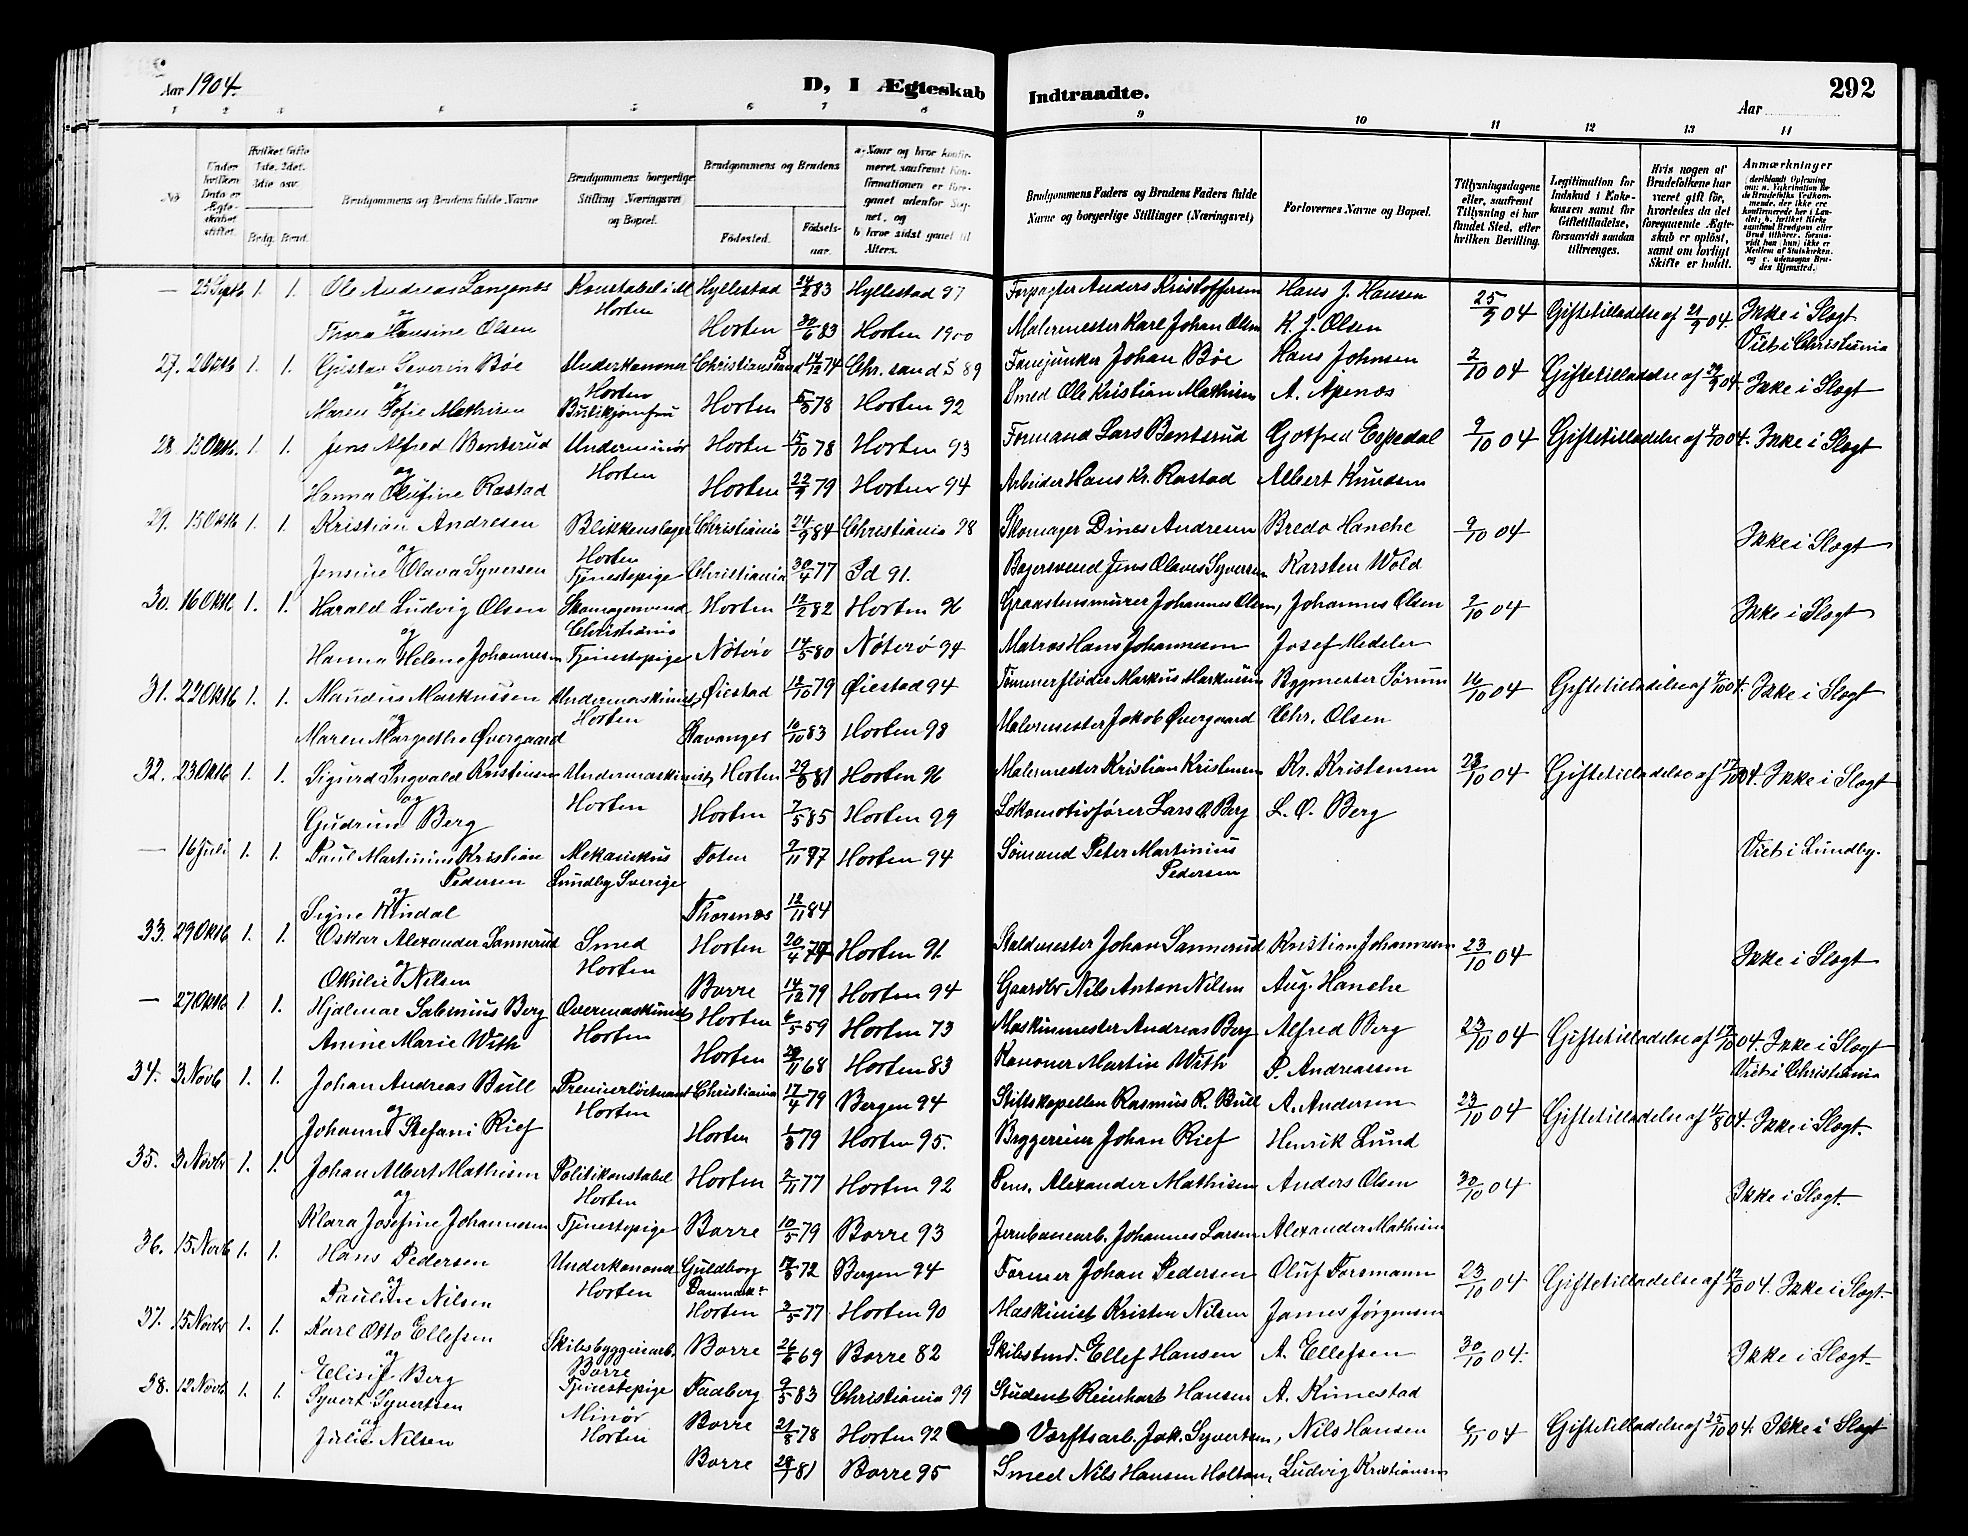 Aar 1904.
D, I Ægteskab Indtraadte.
Aar
292
1 2 3 4 5 6 7 8 9 10 11 12 13 14
No
Under hvilken Dato er Ægteskabet stiftet.
Hvilket Gifte 1ste, 2det, 3die osv.
Brdg. Brud.
Brudgommens og Brudens fulde Navne
Brudgommens borgerlige Stilling Næringsvei og Bopæl.
Brudgommens og Brudens
Fødested. Fødselsaar.
a. Naar og hvor konfirmeret saafremt Konfirmationen er foregaaet udenfor Sognet, og
b. hvor sidst gaaet til Alters.
Brudgommens Faders og Brudens Faders fulde Navne og borgerlige Stillinger (Næringsvei)
Forlovernes Navne og Bopæl.
Tillysningsdagene eller, saafremt Tillysning ei har fundet Sted, efter hvilken Bevilling.
Legitimation for Indskud i Enkekassen samt for Giftetilladelse, forsaavidt saadan tiltrænges.
Hvis nogen af Brudefolkene har været gift før, hvorledes da det foregaaende Ægteskab er opløst, samt om lovligt Skifte er holdt.
Anmærkninger
— 25 Septb 1. 1. Ole Andreas Langenæs Konstabel i M Hyllestad 83 Hyllestad 97 Forpagter Anders Kristoffersen Hans J. Hansen 25/9 04 Giftetilladelse af 21/9 04. Ikke i Slægt
og Horten
Thora Hansine Olsen Horten 30/6 83 Horten 1900 Malermester Karl Johan Olsen K. J. Olsen Viet i Christiania
27. 2 Oktb 1. 1. Gustav Severin Bøe Underkanoner Christianssand 14/12 74 Chr.sand S 89 Fanejunker Johan Bøe Hans Johnsen 2/10 04 Giftetilladelse af 29/9 04. Ikke i Slægt
og Horten
Maren Sofie Mathisen Horten 78 Horten 92 Smed Ole Kristian Mathisen A. Apenæs
28. 15 Oktb. 1. 1. Jens Alfred Bentsrud Underminør Horten 15/10 78 Horten 93 Formand Lars Bentsrud Gotfred Espedal 9/10 04 Giftetilladelse af 4/10 04. Ikke i Slægt
og Horten
Hanna Olufine Rastad Horten 22/9 79 Horten 94 Arbeider Hans Kr. Rastad Albert Knudsen
29. 15 Oktb 1. 1. Kristian Andresen Blikkenslager Christiania 24/9 84 Christiania 98 Skomager Dines Andresen Bredo Hanche 9/10 04 Ikke i Slægt
og Horten
Jensine Olava Syversen Tjenestepige Christiania 30/4 77 Sd 91. Bagersvend Jens Olaves Syversen Karsten Wold
30. 16 Oktb 1. 1. Harald Ludvig Olsen Skomagersvend Horten 12/2 82 Horten 96 Graastensmurer Johannes Olsen, Johannes Olsen 2/10 04 Ikke i Slægt
og Christiania
Hanna Helene Johannesen Tjenestepige Nøterø 14/5 80 Nøterø 94 Matros Hans Johannesen Josef Medeler
31. 22 Oktb 1. 1. Maudus Markussen Undermaskinist Øiestad 12/10 79 Øiestad 94 Tømmerfløder Markus Markussen Bygmester Sørum 16/10 04 Giftetilladelse af 4/10 04. Ikke i Slægt
og Horten
Maren Margrethe Øvergaard Stavanger 10/10 83 Horten 98 Malermester Jakob Øvergaard Chr. Olsen
32. 23 Oktb 1. 1. Sigurd Ingvald Kristensen Undermaskinist Horten 81 Horten 96 Malermester Kristian Kristensen Kr. Kristensen 23/10 04 Giftetilladelse af 17/10 04. Ikke i Slægt
og Horten
Gudrun Berg Horten 7/5 85 Horten 99 Lokomotivfører Lars O. Berg L. O. Berg
— 16 Juli 1. 1. Paul Martinius Kristian Mekanikus Toten Horten 94 Sømand Peter Martinius Viet i Lundby.
Pedersen Lundby Sverige Pedersen
og
Signe Kindal Thorsnæs 12/11 84
33. 29 Oktb 1. 1. Oskar Alexander Sannerud Smed Horten 20/4 Horten 91 Staldmester Johan Sannerud Kristian Johannesen 23/10 04 Ikke i Slægt
og Horten
Othilie Nilsen Borre 14/12 79 Horten 94 Gaardbr Nils Anton Nilsen Aug. Hanche
— 27 Oktb 1 1. Hjalmar Salemius Berg Overmaskinist Horten 6/5 59 Horten 73 Maskinmester Andreas Berg Alfred Berg 23/10 04 Giftetilladelse af 17/10 04. Ikke i Slægt
Anine Marie With Horten Horten 68 Horten 83 Kanoner Martin With P. Andreassen Viet i Christiania
34. 3 Novb 1. 1. Johan Andreas Bull Premierløitnant Christiania 17/4 79 Bergen 94 Stiftskapellan Rasmus R. Bull A. Andersen 23/10 04 Giftetilladelse af 11/8 04. Ikke i Slægt.
og Horten
Johanne Stefani Rief Horten 79 Horten 95. Bryggerieier Johan Rief Henrik Lund
35. 3 Novbr 1. 1. Johan Albert Mathisen Politikonstabel Horten 2/11 77 Horten 92 Pens. Alexander Mathisen Anders Olsen 30/10 04 Ikke i Slægt.
og Horten
Klara Josefine Johannesen Tjenestepige Borre 10/5 79 Borre 93 Jernbanearb. Johannes Larsen Alexander Mathisen
36. 15 Novb 1. 1. Hans Pedersen Underkanoner Guldborg 72 Bergen 94 Former Johan Pedersen Oluf Forsmann 23/10 04 Giftetilladelse af 12/10 04. Ikke i Slægt.
og Horten Danmark
Pauline Nilsen Horten 3/5 77 Horten 90 Maskinist Kristen Nilsen James Jørgensen
37. 15 Novbr 1. 1. Karl Otto Ellefsen Skibsbyggeriarb. Borre 26/6 69 Borre 82 Skibstmd. Ellef Hansen A. Ellefsen 30/10 04. Ikke i Slægt.
og Borre
Elisif Berg Tjenestepige Faaberg 9/5 83 Christiania 99 Student Reinhart Hansen A. Kimestad
38. 12 Novb 1. 1. Syvert Syvertsen Minør Borre 21/8 78 Horten 92 Værftsarb. Jak. Syvertsen, Nils Hansen 6/11 04 Giftetilladelse af 25/10 04. Ikke i Slægt
og Horten
Julie Nilsen Borre 81 Borre 95 Smed Nils Hansen Holtan, Ludvig Kristiansen